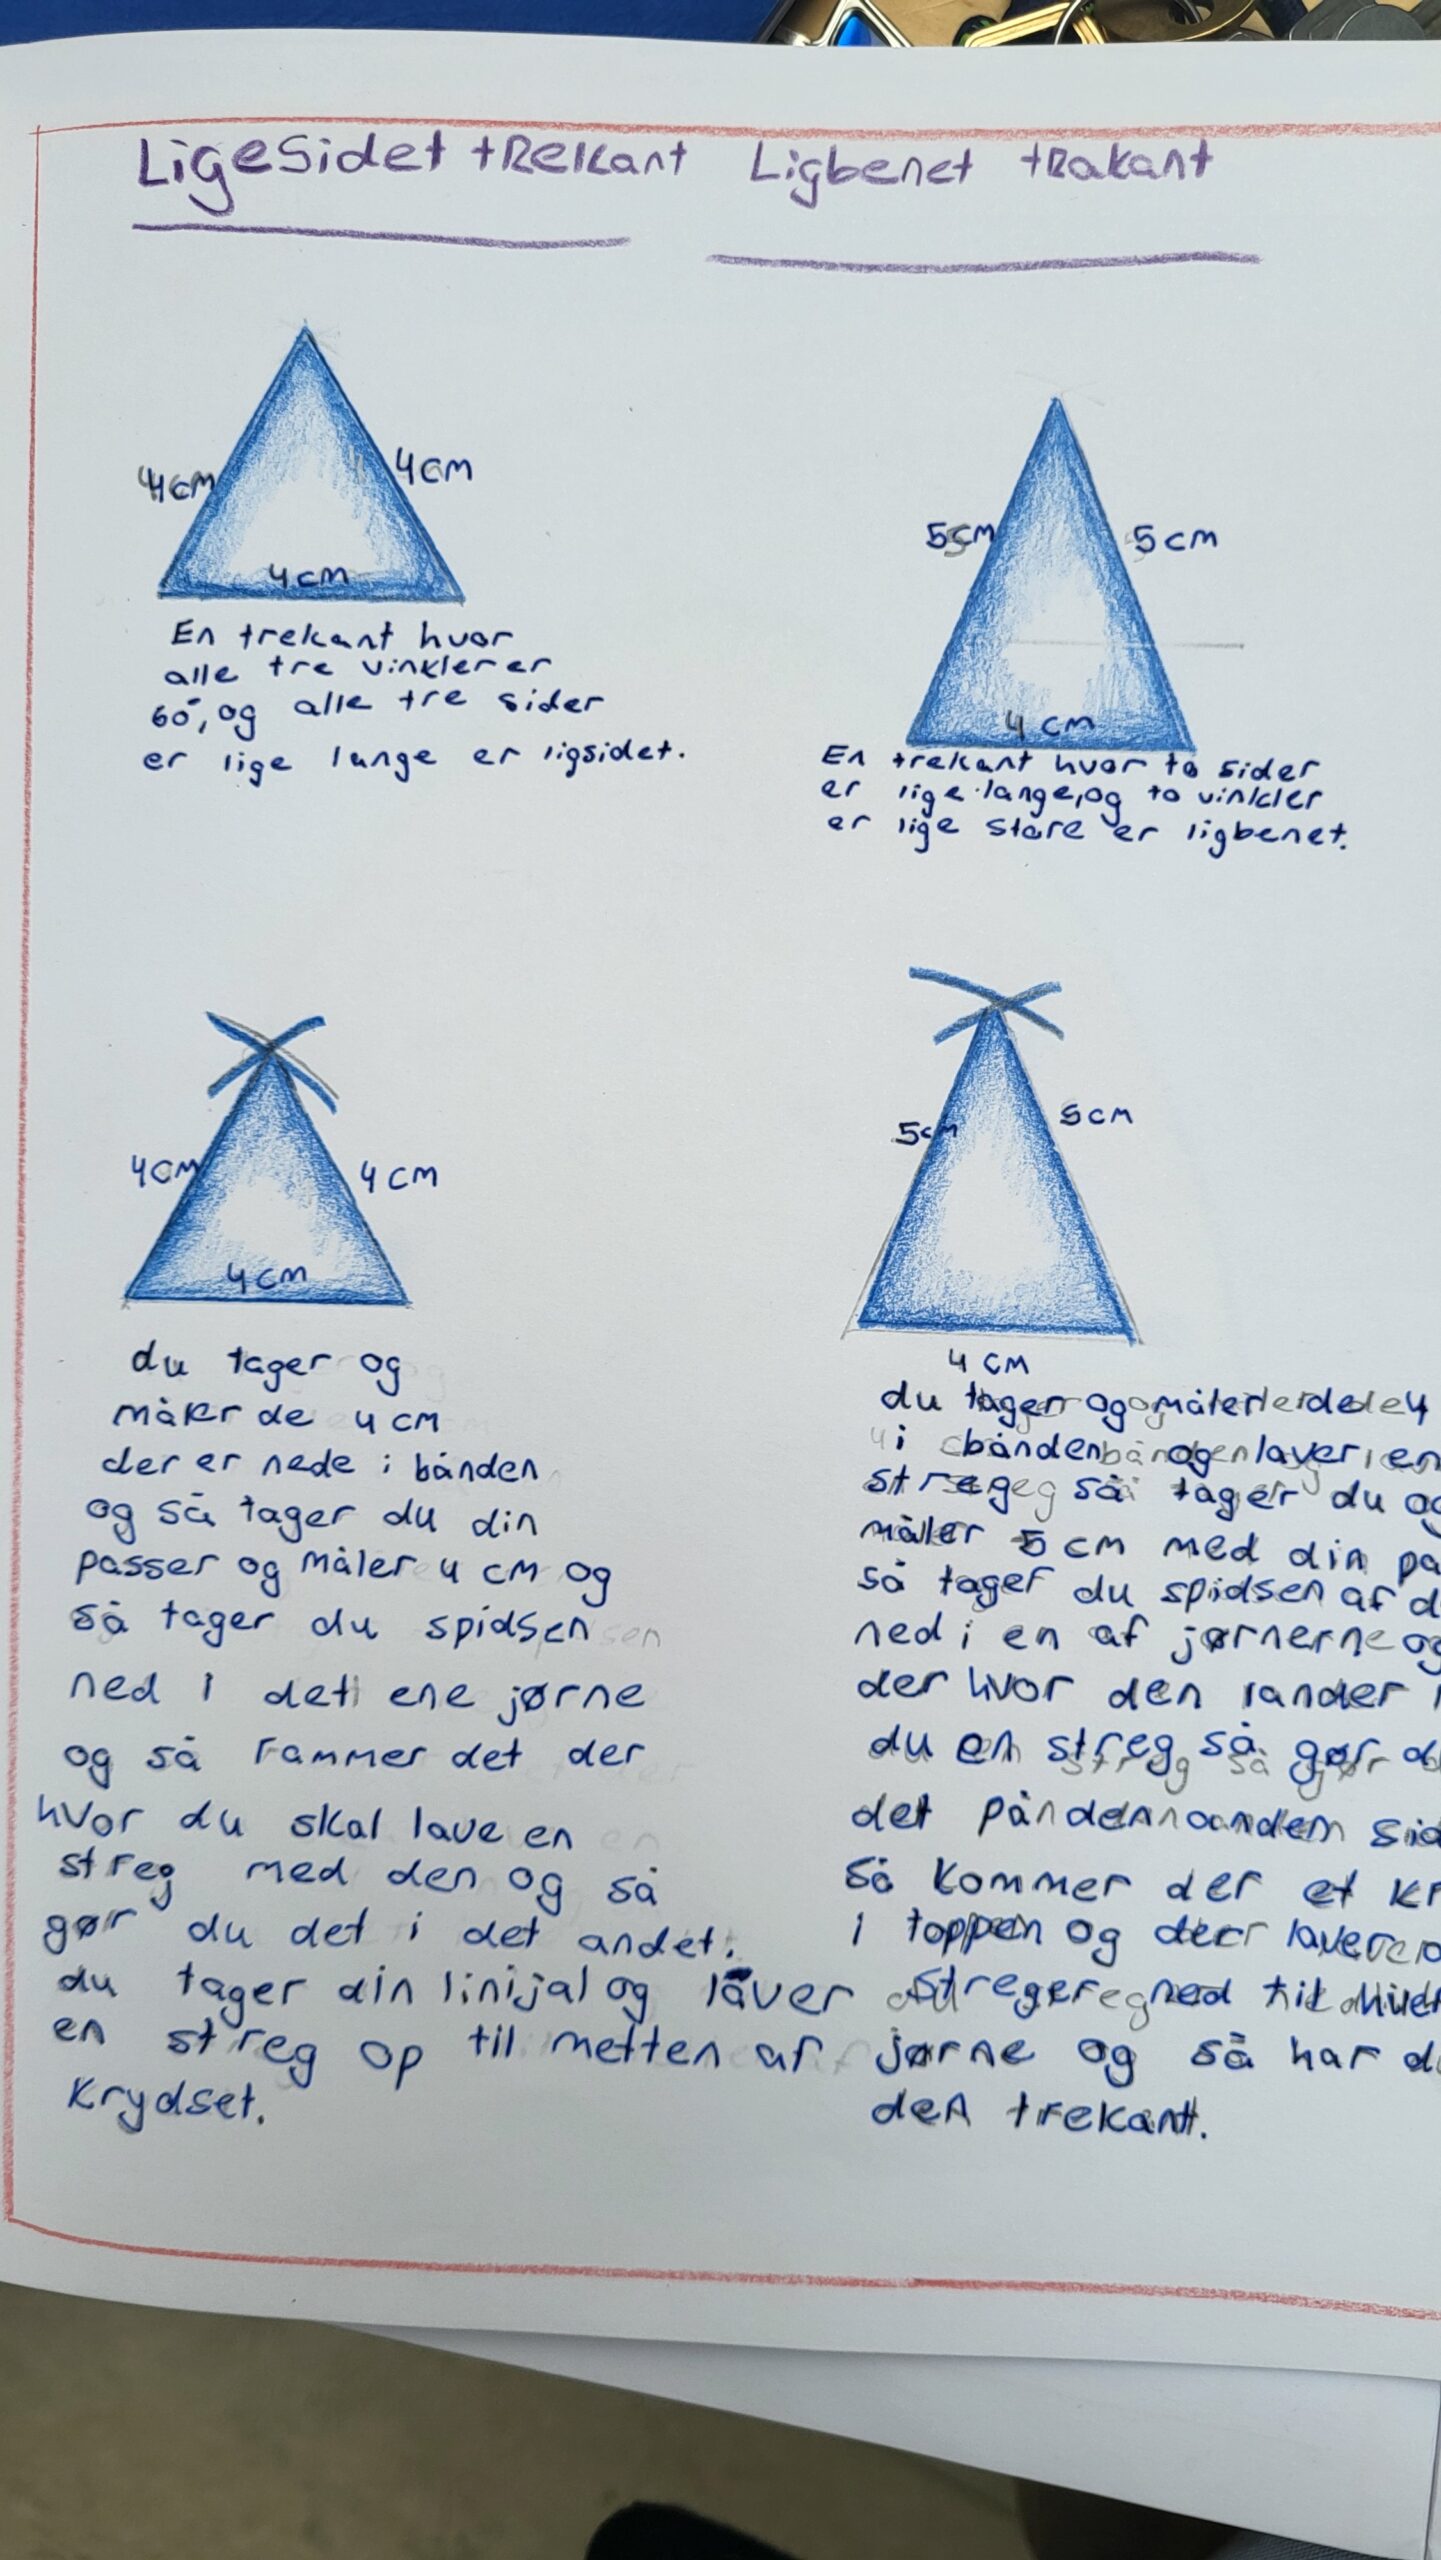 Ligesidet trekant
4cm
4cm
4cm
En trekant hvor
alle tre vinkler er
60°, og alle tre sider
er lige lange er ligsidet.
4cm
4cm
4cm
du tager og
måler de 4 cm
der er nede i bånden
og så tager du din
passer og måler 4 cm og
så tager du spidsen
ned i det ene jørne
og så rammer det der
hvor du skal lave en
streg med den og så
gør du det i det andet.
du tager din linijal og laver
en streg op til metten af
krydset.
Ligbenet trakant
5cm
5cm
4cm
En trekant hvor to sider
er lige lange, og to vinkler
er lige store er ligbenet.
5cm
5cm
4 cm
du tager og måler de 4
i bånden og laver en
streg så tager du og
måler 5 cm med din
så tager du spidsen af
ned i en af jørnerne og
der hvor den lander
du en streg så gør
det på den anden
så kommer der et
i toppen og der laver
streger ned til
jørne og så har
den trekant.